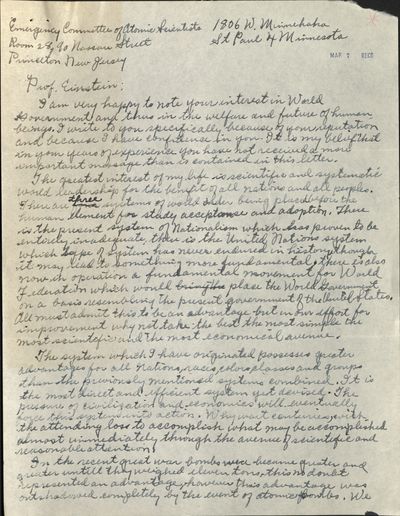 Emergency Committee of Atomic Scientists
Room 28, 90 Nassau Street
Princeton New Jersey
1806 W. Minnehaha
St Paul 4 Minnesota
MAR REC'D
Prof. Einstein:
I am very happy to note your interest in World
Government and thus in the welfare and future of human
beings. I write to you specifically because of your reputation
and because I have confidence in you. It is my belief that
in your years of experience you have not received a more
important message than is contained in this letter.
The greatest interest of my life is scientific and systematic
world leadership for the benefit of all nations and all peoples.
There are three systems of world order being placed before the
human element for study acceptance and adoption. There
is the present system of Nationalism which has proven to be
entirely inadequate, there is the United Nations system
which type of system has never endured in history though
it may lead to something more fundamental. There is also
now in operation a fundamental movement for World
Federation which would bring the place the World Government
on a basis resembling the present government of the United States.
All must admit this to be an advantage but in our effort for
improvement why not take the best the most simple the
most scientific and the most economical avenue.
The system which I have originated possesses greater
advantages for all nations, races, colors, classes and groups
than the previously mentioned systems combined. It is
the most direct and efficient system yet devised. The
pressure of civilization and economics will eventually
force this system into action. Why wait centuries, with
the attending loss to accomplish what may be accomplished
almost immediately through the avenue of scientific and
reasonable attention!
In the recent great war bombs were became greater and
greater until they weighed eleven tons, this no doubt
represented an advantage, however this advantage was
outshadowed completely by the event of atomic bombs. We